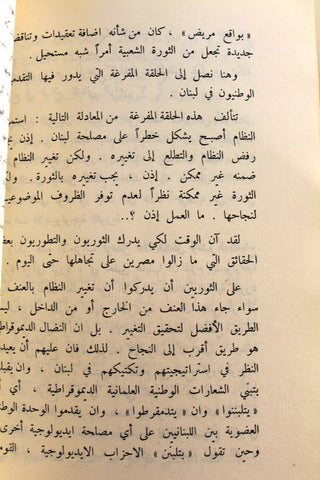 « بواقع مريض » ، كان من شأنه اضافة تعقيدات وتناقض
جديدة تجعل من الثورة الشعبية أمراً شبه مستحيل .
وهنا نصل إلى الحلقة المفرغة التي يدور فيها التقدم
الوطنيون في لبنان .
تتألف هذه الحلقة المفرغة من المعادلة التالية : استم
النظام أصبح يشكل خطراً على مصلحة لبنان . إذن يج
رفض النظام والتطلع إلى تغييره . ولكن تغيير النظام
ضمنه غير ممكن . إذن ، يجب تغييره بالثورة . ولك
الثورة غير ممكنة نظراً لعدم توفر الظروف الموضوعي
لنجاحها . ما العمل إذن ؟..
لقد آن الوقت لكي يدرك الثوريون والتطوريون بعض
الحقائق التي ما زالوا مصرين على تجاهلها حتى اليوم .
على الثوريين أن يدركوا أن تغيير النظام بالعنف
سواء جاء هذا العنف من الخارج أو من الداخل ، ليس
الطريق الأفضل لتحقيق التغيير . بل ان النضال الديموقراط
هو طريق أقرب إلى النجاح . لذلك فان عليهم أن يعيد
النظر في استراتيجيتهم وتكتيكهم في لبنان ، وان يقبلو
بتبني الشعارات الوطنية العلمانية الديموقراطية ، أي أ
« يتلبننوا » وان « يتدمقرطوا » ، وان يقدموا الوحدة الوطن
العضوية بين اللبنانيين على أي مصلحة ايديولوجية أخرى
وحين تقول « بتلبنن » الاحزاب الايديولوجية ، القوم